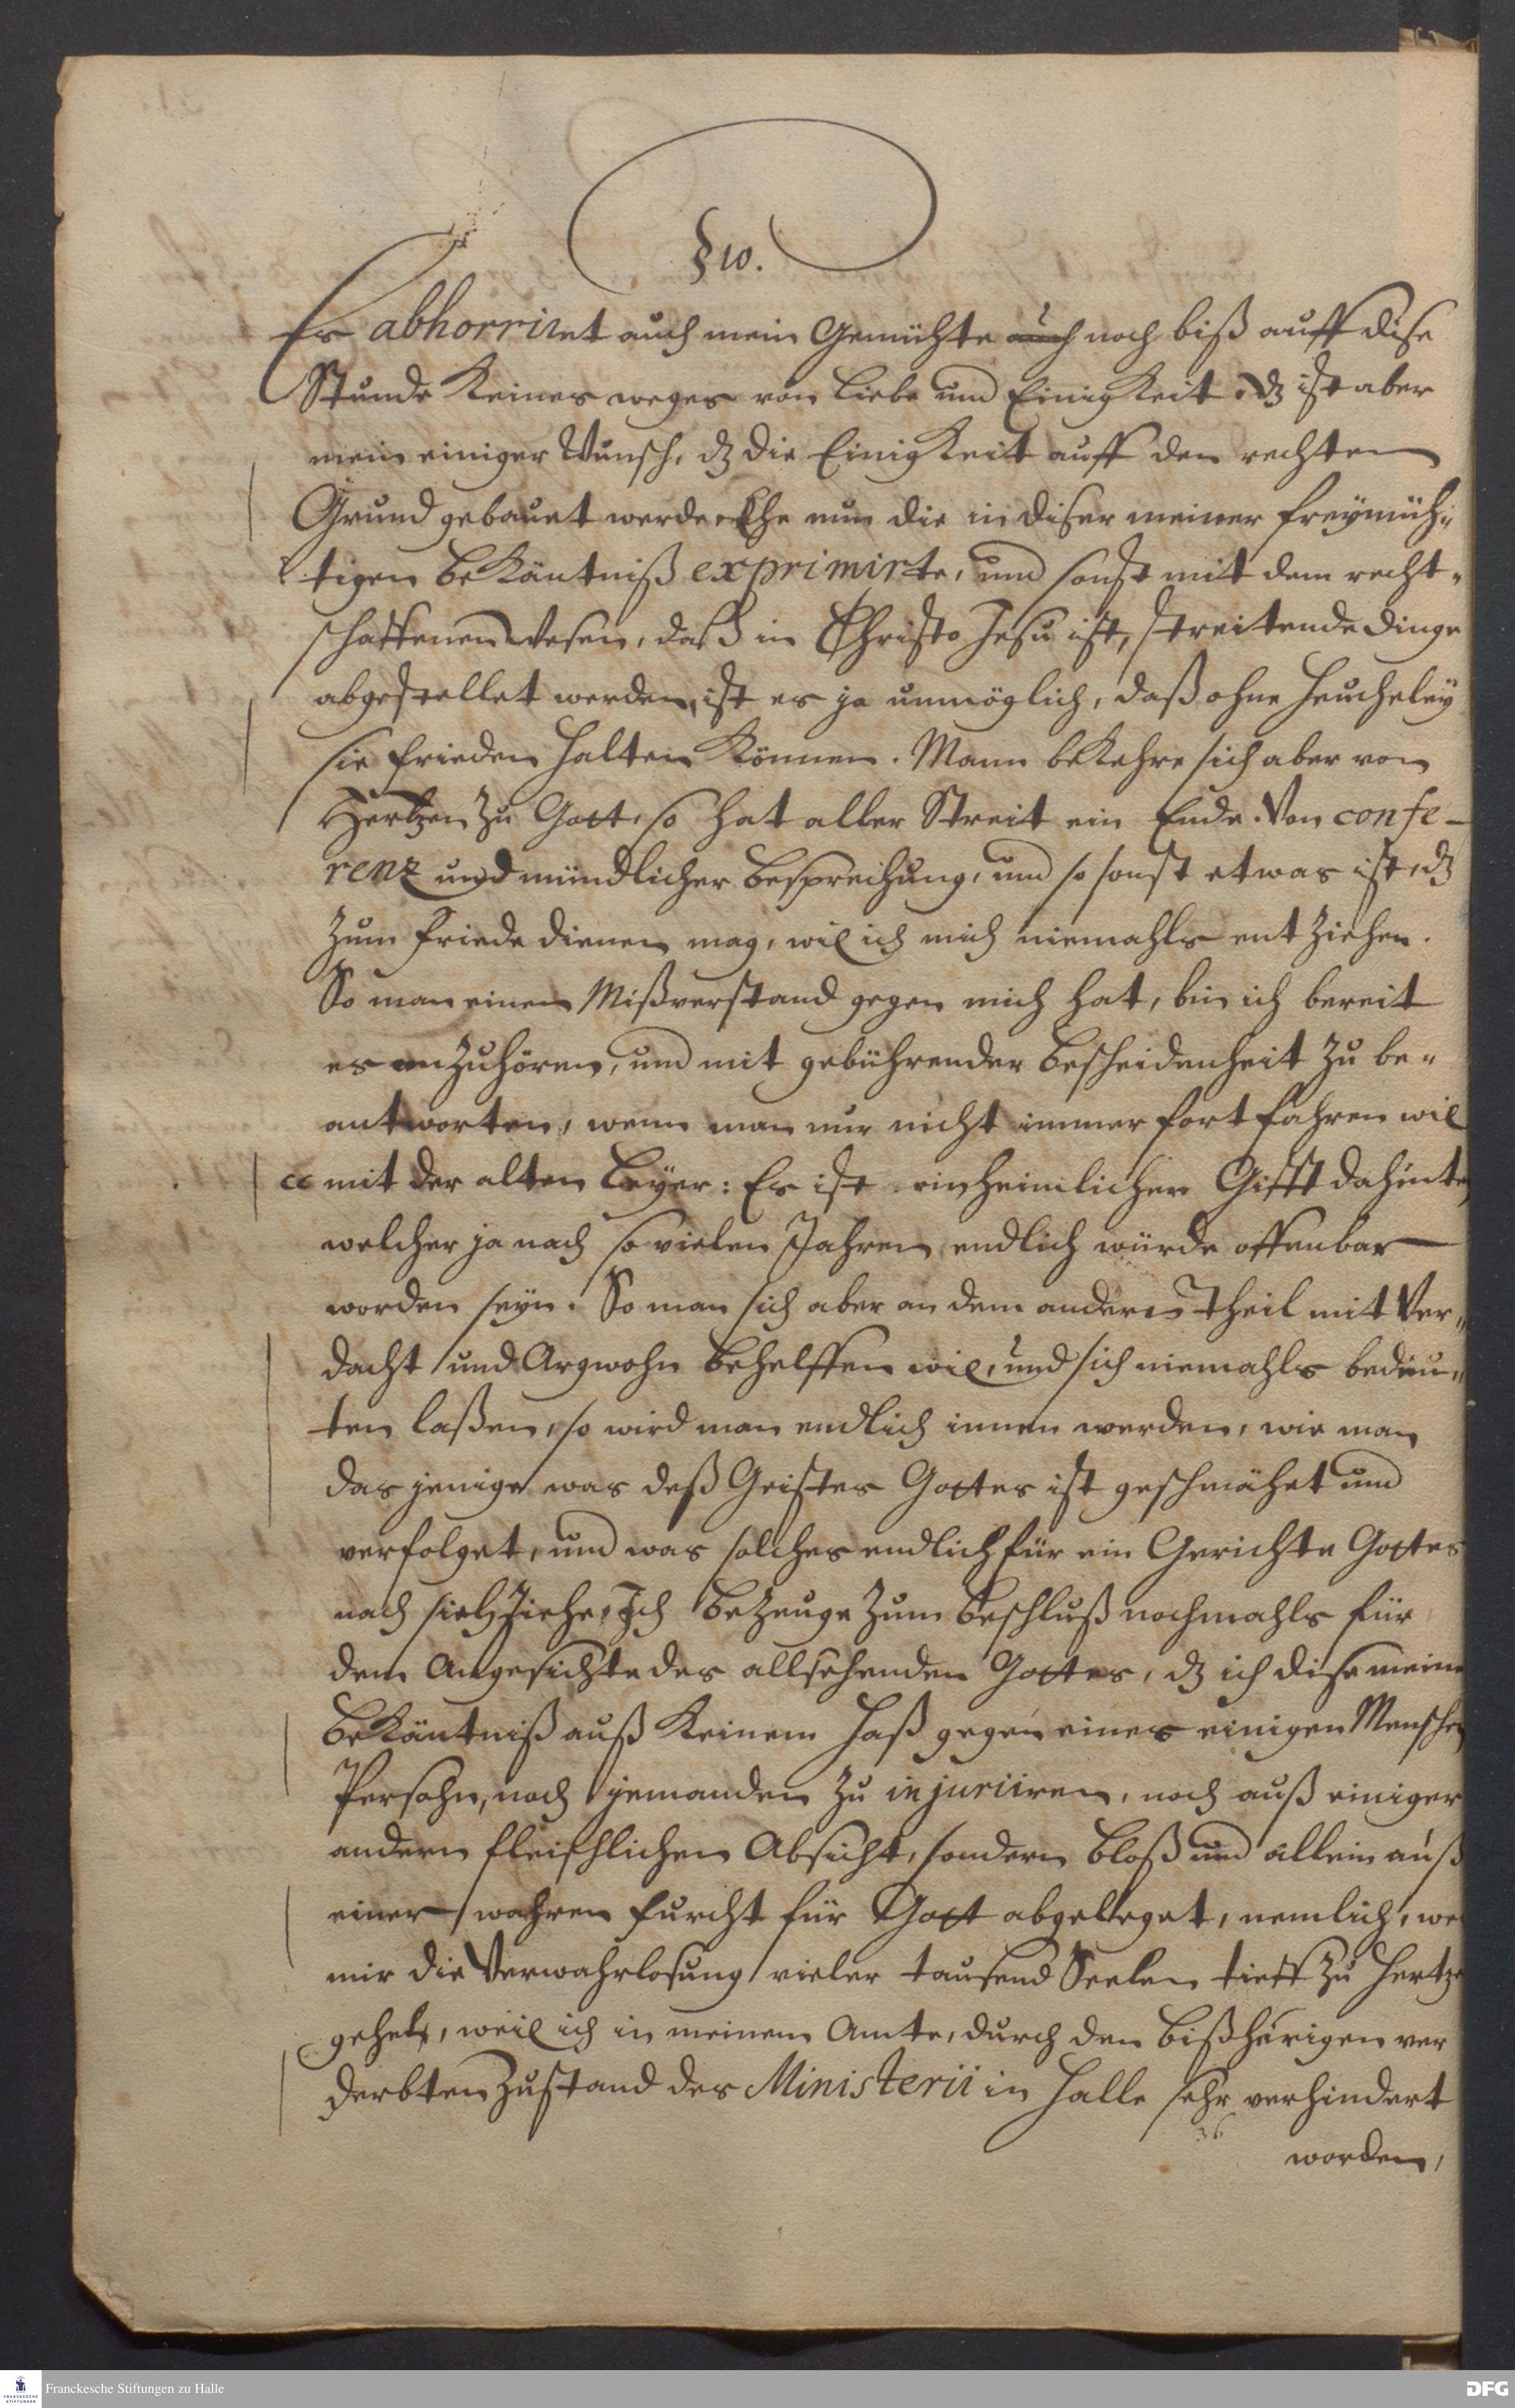 § 10.
Es abhorriret auch mein Gemühte auch noch biß auff dise
Stunde Keines weges von Liebe und EinigKeit, dz ist aber
mein einiger Wunsch, dz die EinigKeit auff den rechten
Grund gebauet werde. Ehe nun die in diser meiner freymüh-
tigen BeKäntniß exprimirte, und sonst mit dem recht-
schaffenen Wesen, daß in Christo Jesu ist, streitende dinge
abgestellet werden, ist es ja unmöglich, daß ohne Heucheley
sie Frieden halten Können. Mann beKehre sich aber von
Hertzen zu Gott, so hat aller Streit ein Ende. Von confe-
renz und mündlicher Besprechung, und so sonst etwas ist, dz
zum Friede dienen mag, wil ich mich niemahls entziehen.
So man einen Mißverstand gegen mich hat, bin ich bereit
es anzuhören, und mit gebührender Bescheidenheit zu be-
antworten, wenn man nur nicht immer fortfahren wil
cc mit der alten Leyer: Es ist ein heimlicher Gifft dahinte
welcher ja nach so vielen Jahren endlich würde offenbar
worden seyn. So man sich aber an dem andern Theil mit Ver-
dacht und Argwohn behelffen wil, und sich niemahls bedeu-
ten laßen, so wird man endlich innen werden, wie man
das jenige was deß Geistes Gottes ist geschmähet und
verfolget, und was solches endlich für ein Gerichte Gottes
nach sich ziehe. Ich bezeuge zum Beschluß nochmahls für
dem Angesichte des allsehenden Gottes, dz ich dise meine
BeKäntniß auß Keinem Haß gegen eines einigen Menschen
Persohn, noch jemanden zu injuriiren, noch auß einiger
andern fleischlichen Absicht, sondern bloß und allein auß
einer wahren Furcht für Gott abgeleget, nemlich, we
mir die Verwahrlosung vieler tausend Seelen tieff zu Hertze
gehet, weil ich in meinem Amte, durch den bißherigen ver
derbten Zustand des Ministerii in Halle sehr verhindert
36
worden,
Franckesche Stiftungen zu Halle
DFG